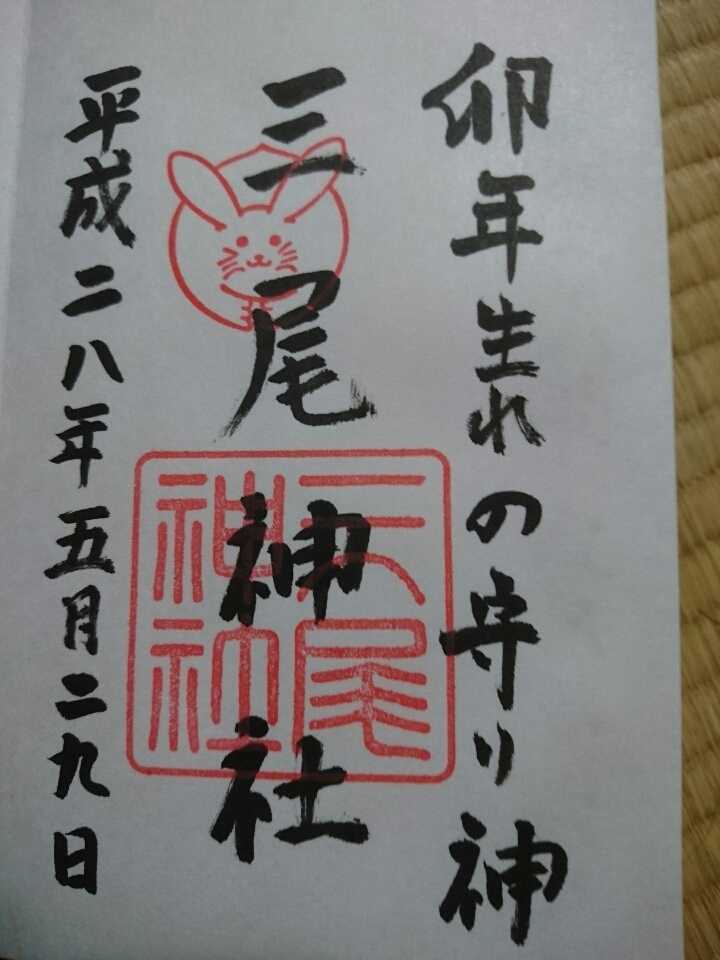 卯年生れの守り神
三尾神社
平成二八年五月二九日
三尾神社